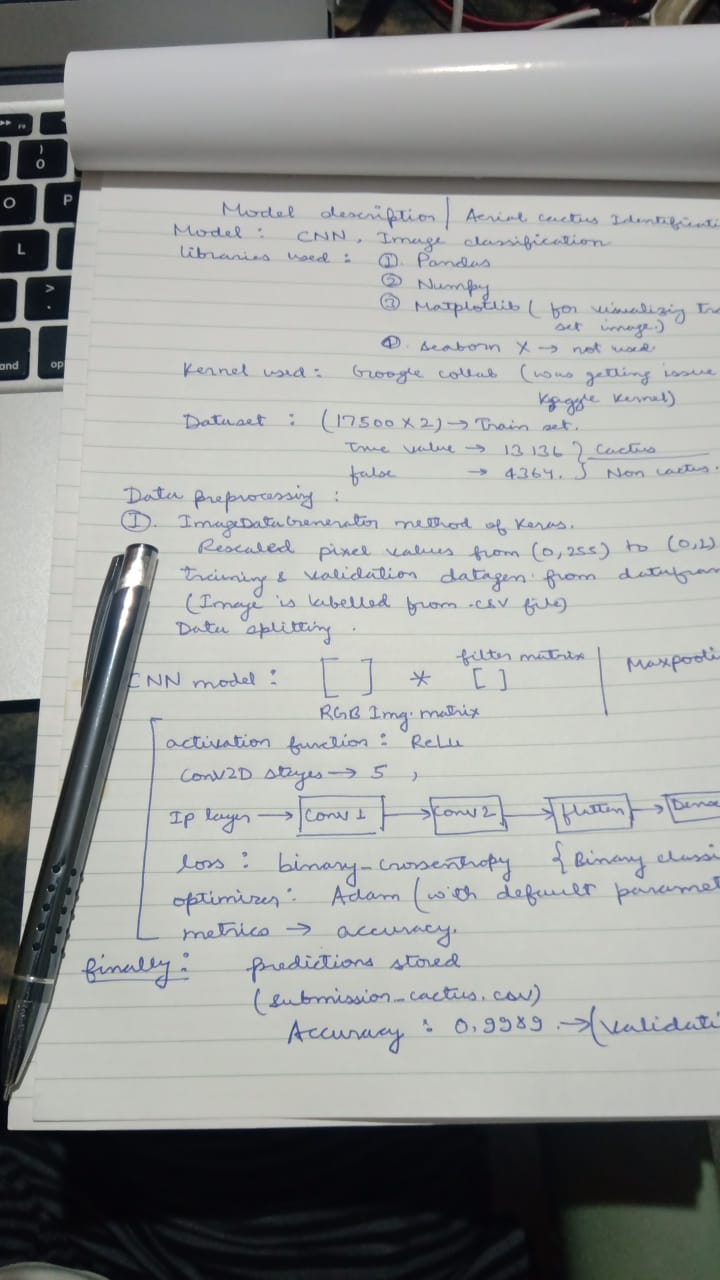 Model description | Aerial cactus Identificati
Model : CNN, Image classification
libraries used : ① Pandas
② Numpy
③ Matplotlib ( for visualizing tra
set image.)
④ seaborn X → not used
Kernel used : Google collab (was getting issue
Kaggle Kernel)
Dataset : (17500 X 2) → Train set.
True value → 13136 } Cactus
false → 4364. } Non cactus.
Data preprocessing :
①. ImageDataGenerator method of Keras.
Rescaled pixel values from (0,255) to (0,1)
training & validation datagen from datafram
(Image is labelled from .csv file)
Data splitting .
CNN model : [ ] * filter matrix [ ] | Maxpooli
RGB Img. matrix
activation function : ReLu
Conv2D stages → 5 ,
Ip layer → Conv 1 → Conv 2 → flatten → Dense
loss : binary_crossentropy { Binary classi
optimizer : Adam (with default paramet
metrics → accuracy.
finally : predictions stored
(submission_cactus.csv)
Accuracy : 0.9989 → (validati
O
P
L
>
.
)
0
and
op
F9